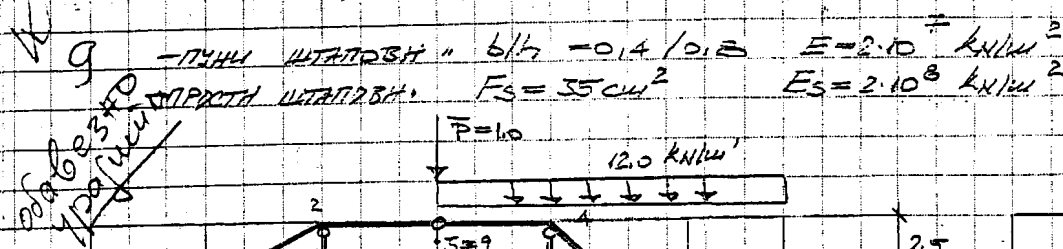 9 -ПУНИ ШТАПОВИ " b/h = 0,4 / 0,8 E = 2·10⁷ kN/m²
ПРОСТИ ШТАПОВИ. Fs = 35 cm² Es = 2·10⁸ kN/m²
обавезно
урадити
P̅=1,0
12.0 kN/m'
2
4
2,5